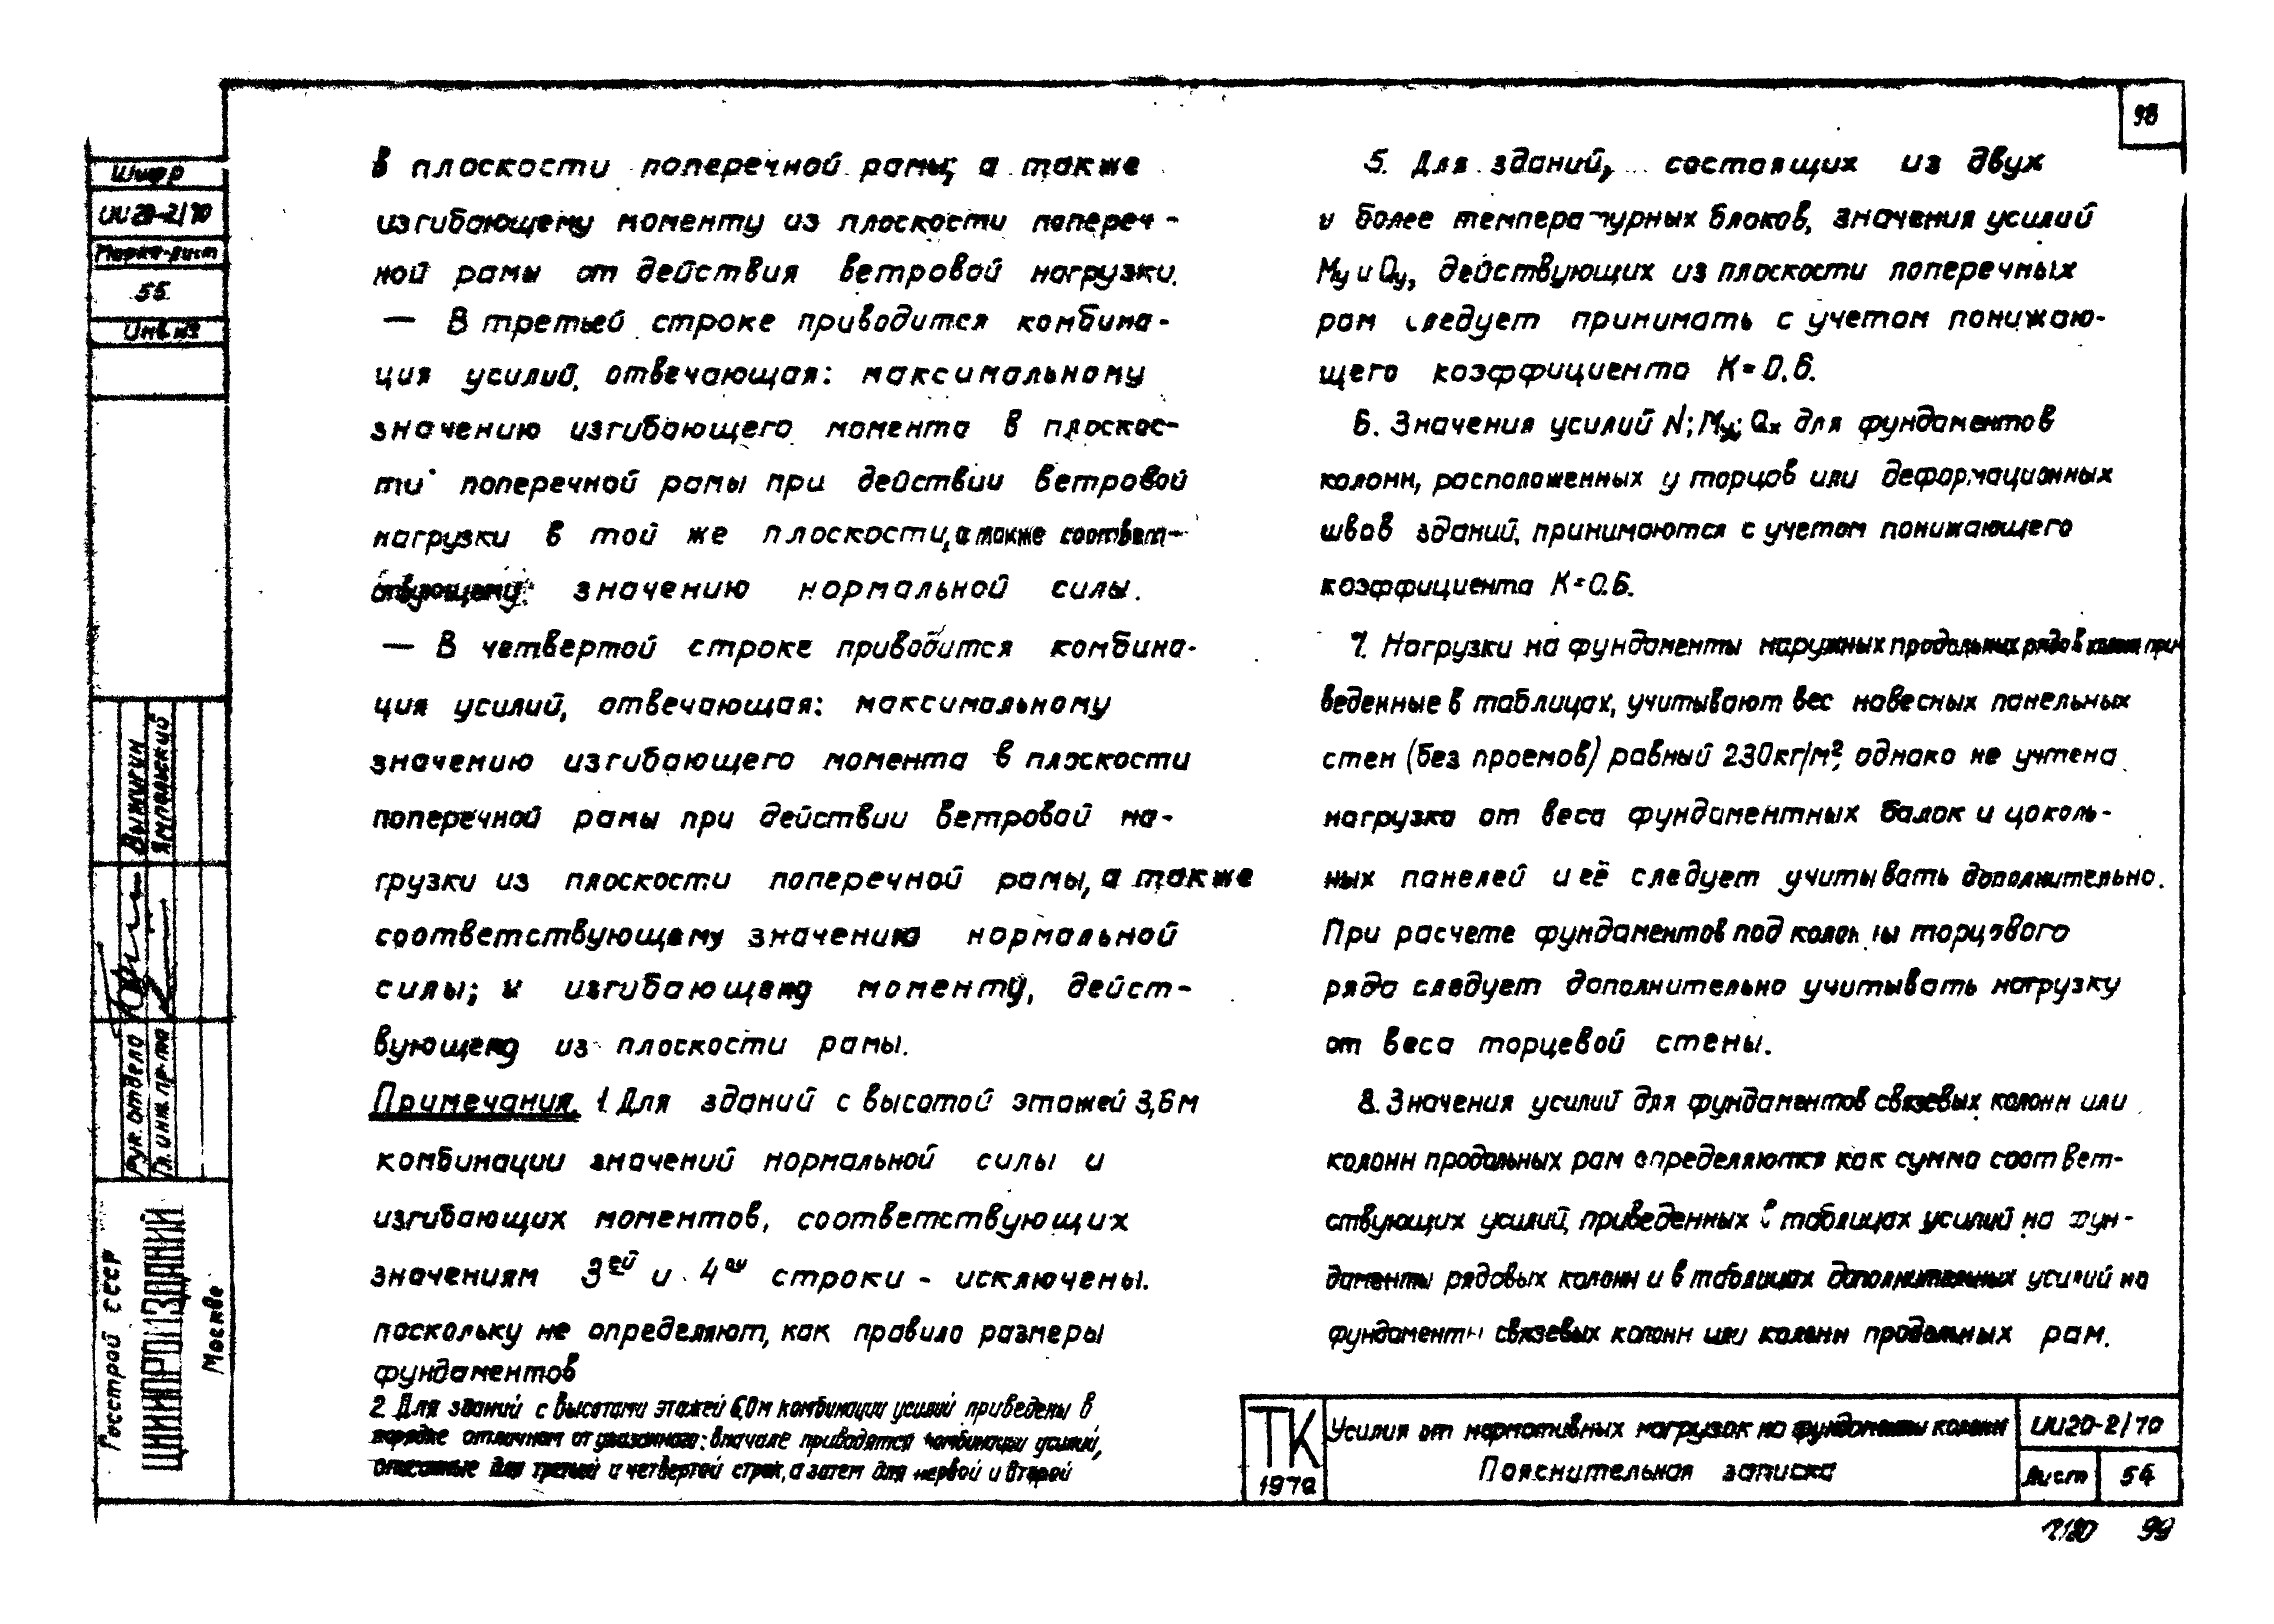 98
Шифр
ИИ20-2/70
Марка-лист
55
Инв №
Выжигин
Ямпольский
Рук. отдела
Гл. инж. пр-та
Госстрой СССР
ЦНИИПРОМЗДАНИЙ
Москва
в плоскости поперечной рамы; а также
изгибающему моменту из плоскости попереч-
ной рамы от действия ветровой нагрузки.
— В третьей строке приводится комбина-
ция усилий, отвечающая: максимальному
значению изгибающего момента в плоскос-
ти поперечной рамы при действии ветровой
нагрузки в той же плоскости, а также соответ-
ствующему значению нормальной силы.
— В четвертой строке приводится комбина-
ция усилий, отвечающая: максимальному
значению изгибающего момента в плоскости
поперечной рамы при действии ветровой на-
грузки из плоскости поперечной рамы, а также
соответствующему значению нормальной
силы; и изгибающему моменту, дейст-
вующему из плоскости рамы.
Примечания. 1. Для зданий с высотой этажей 3,6 м
комбинации значений нормальной силы и
изгибающих моментов, соответствующих
значениям 3ей и 4ой строки - исключены.
поскольку не определяют, как правило размеры
фундаментов
2 Для зданий с высотами этажей 6,0м комбинации усилий приведены в
порядке отличном от указанного: вначале приводятся комбинации усилий,
описанные для третьей и четвертой строк, а затем для первой и второй
5. Для зданий, состоящих из двух
и более температурных блоков, значения усилий
Му и Qу, действующих из плоскости поперечных
рам следует принимать с учетом понижаю-
щего коэффициента К=0.6.
6. Значения усилий N; Му; Qх для фундаментов
колонн, расположенных у торцов или деформационных
швов зданий, принимаются с учетом понижающего
коэффициента К=0.6.
7. Нагрузки на фундаменты наружных продольных рядов колонн при-
веденные в таблицах, учитывают вес навесных панельных
стен (без проемов) равный 230кг/м², однако не учтена
нагрузка от веса фундаментных балок и цоколь-
ных панелей и её следует учитывать дополнительно.
При расчете фундаментов под колонны торцового
ряда следует дополнительно учитывать нагрузку
от веса торцевой стены.
8. Значения усилий для фундаментов связевых колонн или
колонн продольных рам определяются как сумма соответ-
ствующих усилий, приведенных в таблицах усилий на фун-
даменты рядовых колонн и в таблицах дополнительных усилий на
фундаменты связевых колонн или колонн продольных рам.
ТК
1970
Усилия от нормативных нагрузок на фундаменты колонн
Пояснительная записка
ИИ20-2/70
Лист 54
99